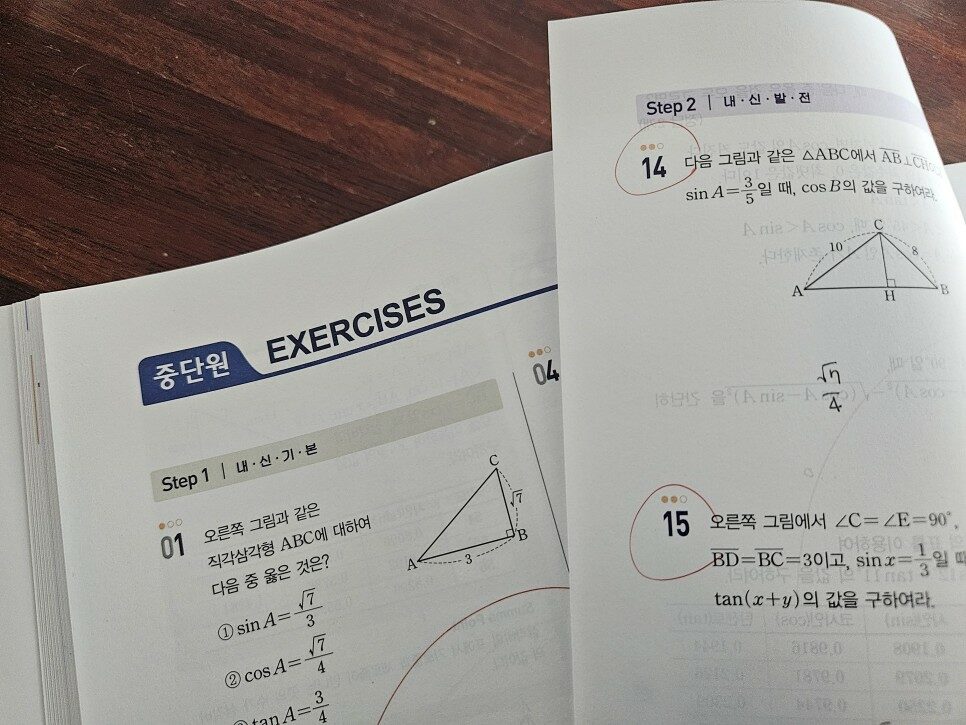 중단원 EXERCISES
Step 1 | 내·신·기·본
01 오른쪽 그림과 같은
직각삼각형 ABC에 대하여
다음 중 옳은 것은?
C
√7
B
A
3
① sin A = √7/3
② cos A = √7/4
③ tan A = 3/4
04
Step 2 | 내·신·발·전
14 다음 그림과 같은 △ABC에서 AB⊥CH
sin A = 3/5일 때, cos B의 값을 구하여라.
C
10
8
A
H
B
√7/4
15 오른쪽 그림에서 ∠C=∠E=90°,
BD=BC=3이고, sin x = 1/3일 때
tan(x+y)의 값을 구하여라.